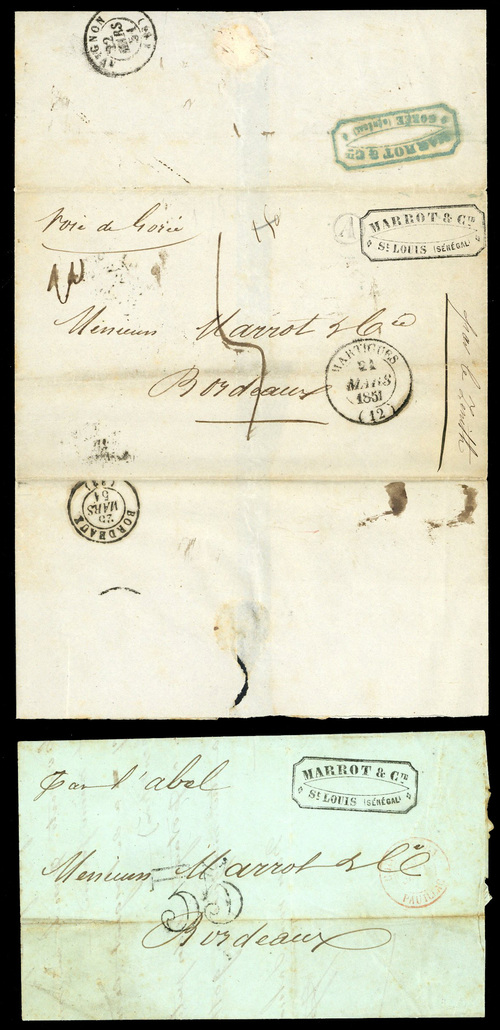 AVIGNON
22
MARS
51
MARROT & Cie
GORÉE (SÉNÉGAL)
Voie de Gorée
MARROT & Cie
St LOUIS (SÉNÉGAL)
Messieurs Marrot & Cie
Bordeaux
MARTIGUES
21
MARS
1851
(12)
par le
BORDEAUX
25
MARS
51
MARROT & Cie
St LOUIS (SÉNÉGAL)
Par l'abel
Messieurs Marrot & Cie
25
Bordeaux
PAUILLAC